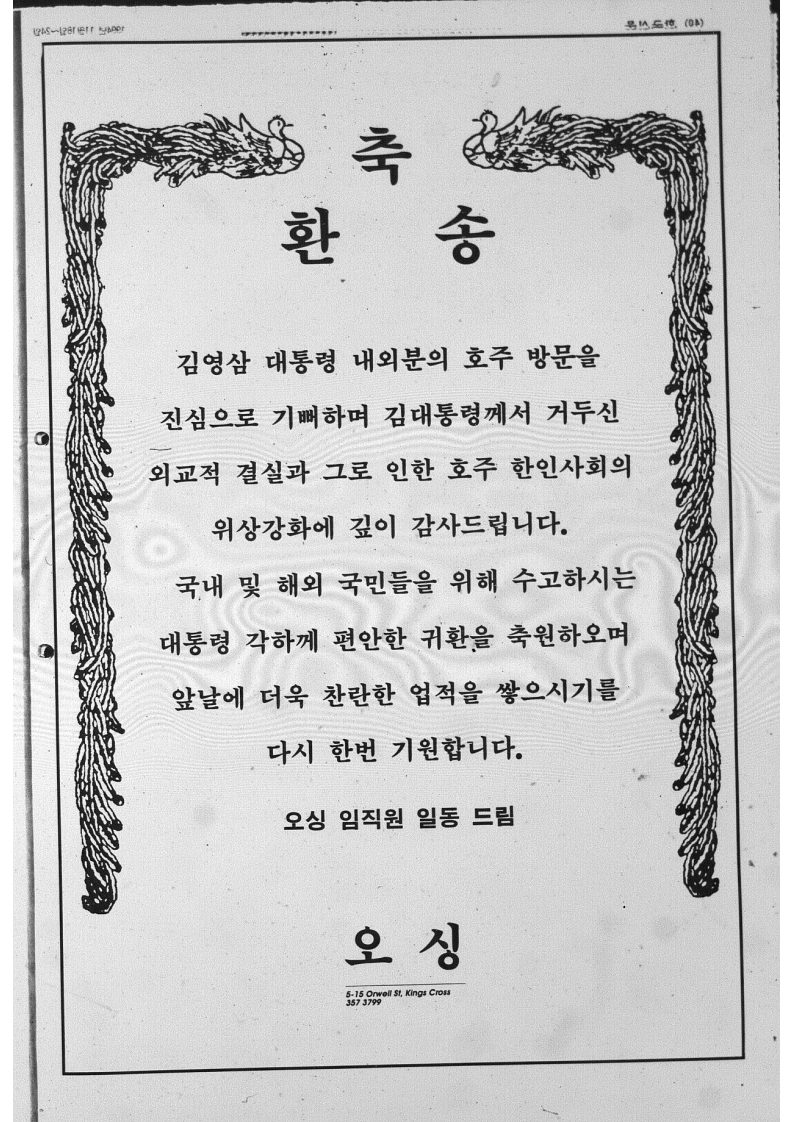 (40) 한호신문
1994년 11월 18일~24일
축
환 송
김영삼 대통령 내외분의 호주 방문을
진심으로 기뻐하며 김대통령께서 거두신
외교적 결실과 그로 인한 호주 한인사회의
위상강화에 깊이 감사드립니다.
국내 및 해외 국민들을 위해 수고하시는
대통령 각하께 편안한 귀환을 축원하오며
앞날에 더욱 찬란한 업적을 쌓으시기를
다시 한번 기원합니다.
오싱 임직원 일동 드림
오 싱
5-15 Orwell St, Kings Cross
357 3799